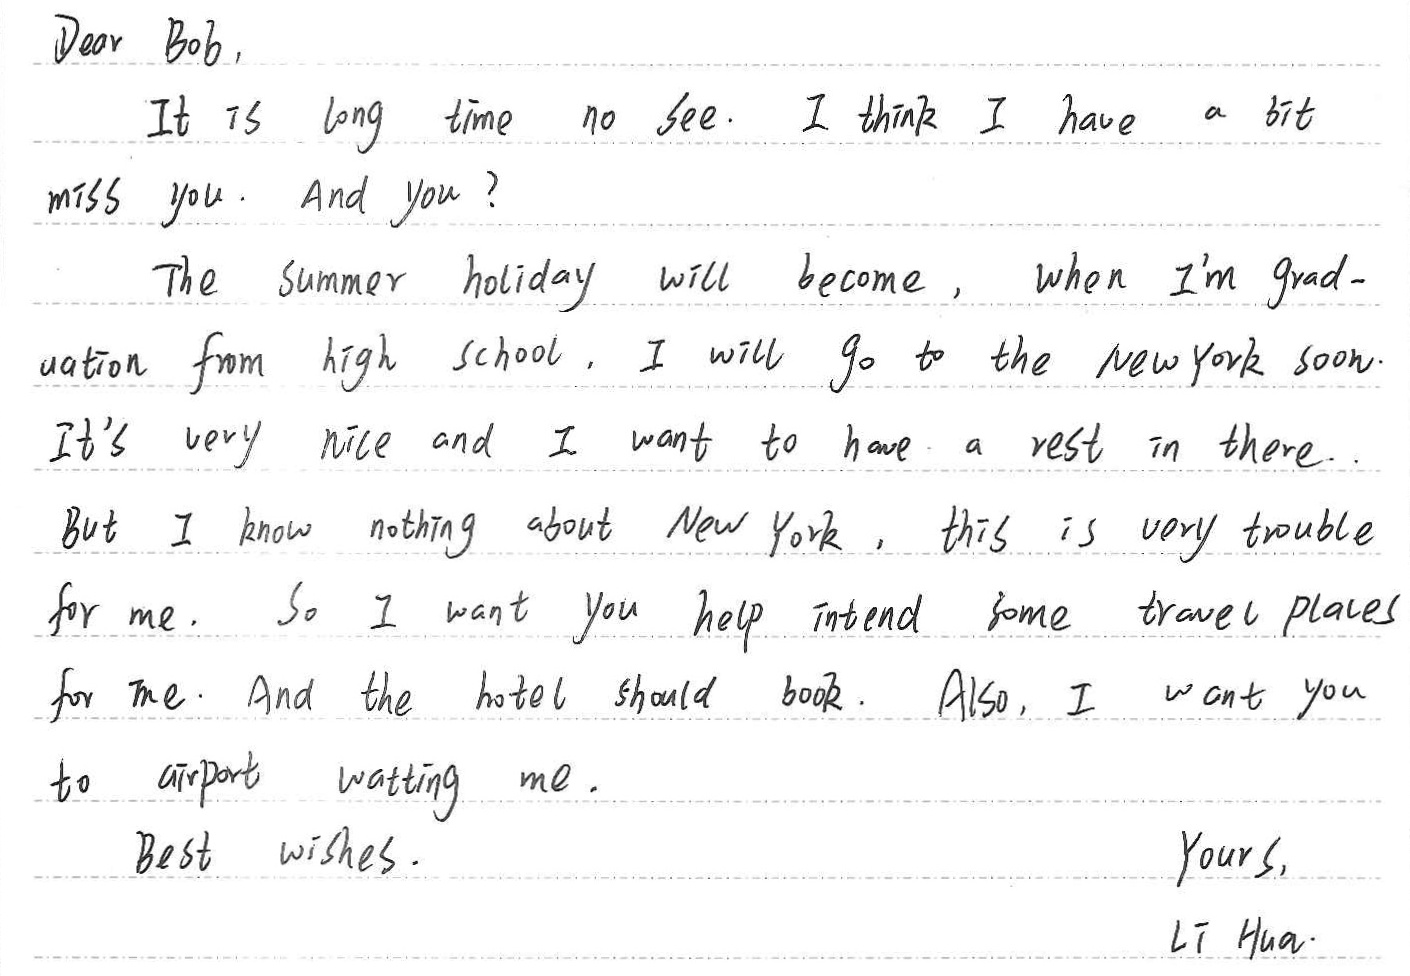 Dear Bob,
It is long time no see. I think I have a bit
miss you. And you?
The summer holiday will become, when I'm grad-
uation from high school. I will go to the New York soon.
It's very nice and I want to have a rest in there..
But I know nothing about New York, this is very trouble
for me. So I want you help intend some travel places
for me. And the hotel should book. Also, I want you
to airport watting me.
Best wishes.
Yours,
Li Hua.